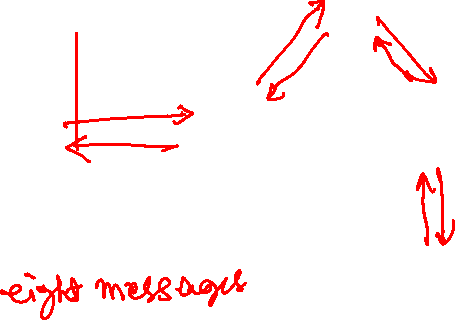 eight messages